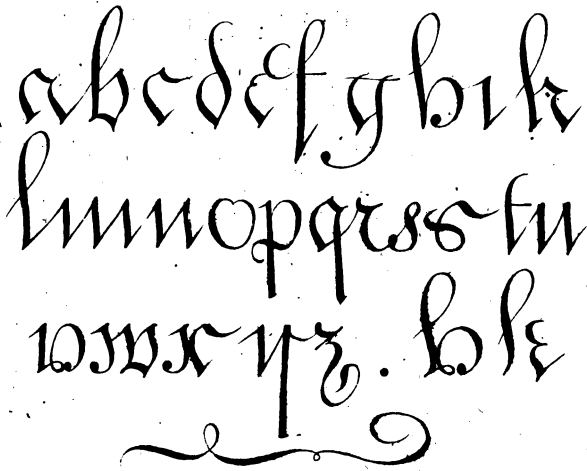 a b c d e f g h i k
l m n o p q r s s t u
v w x y z . h k